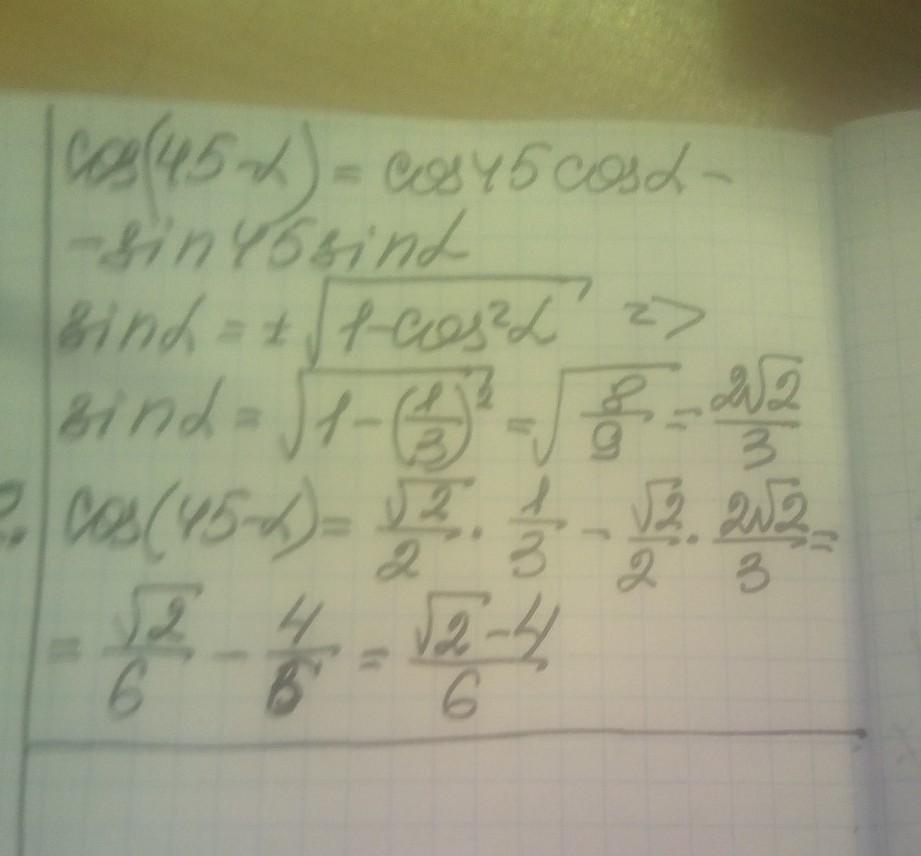 cos(45-α) = cos45cosα-
-sin45sinα
sinα = ±√(1-cos²α) =>
sinα = √(1-(1/3)²) = √(8/9) = 2√2/3
cos(45-α) = √2/2 · 1/3 - √2/2 · 2√2/3 =
= √2/6 - 4/6 = (√2-4)/6